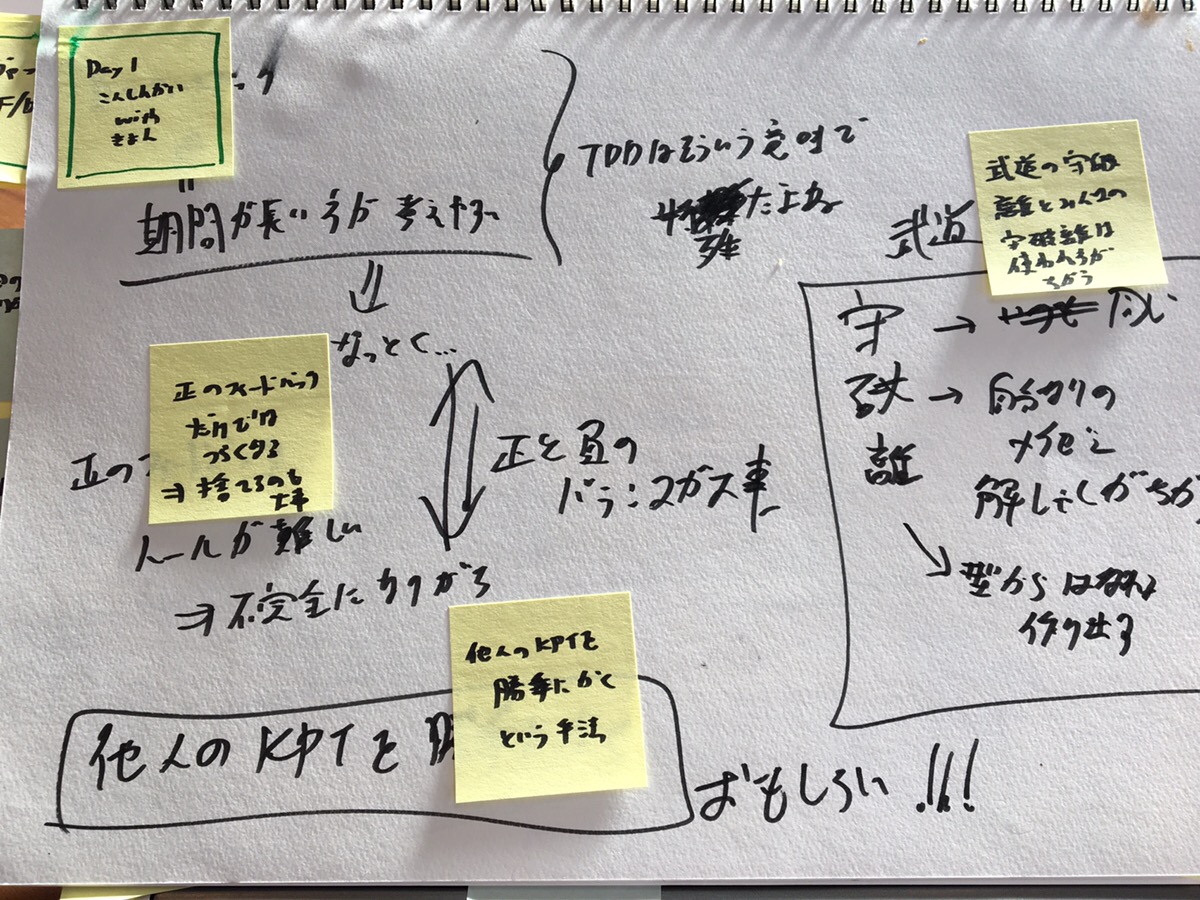 Day 1
こんしんかい
with
きょん
ック
期間が長い方が考えやすい
TDDはそういう意味で
たよね
武道
武道の守破
離とみんなの
守破離は
使われ方が
ちがう
なっとく...
正のフィードバック
だけでは
つらくなる
⇒ 捨てるのも
大事
正の
ルールが難しい
⇒ 不完全になりがち
正と負の
バランスが大事
守 → 同じ
破 → 自分なりの
離
解しやくがちが
型からはなれ
作り出す
他人のKPTを
勝手にかく
という手法
他人のKPTを
おもしろい!!!